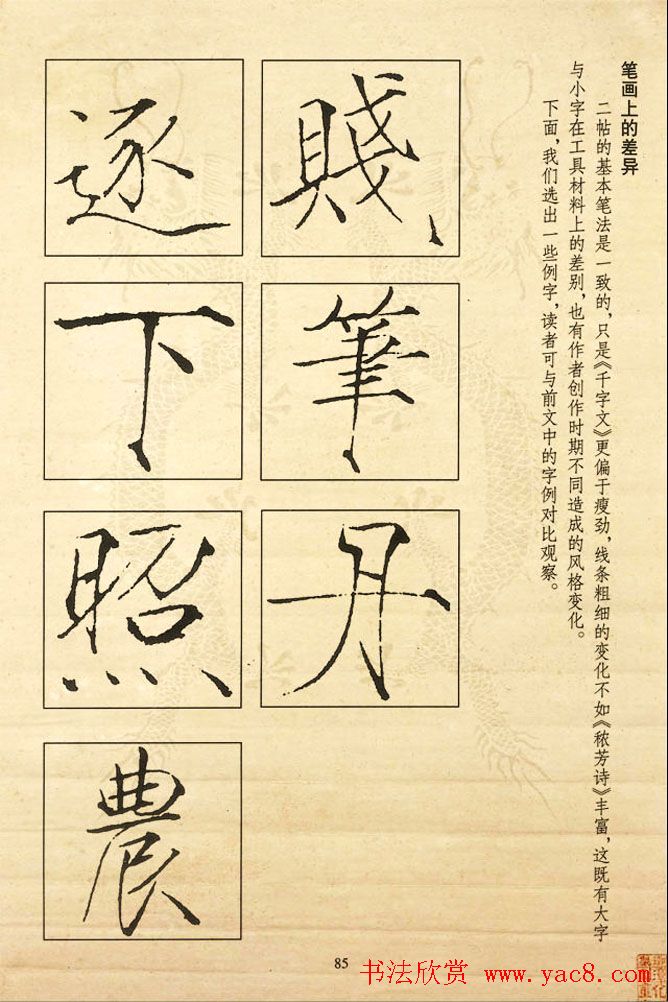 笔画上的差异
二帖的基本笔法是一致的，只是《千字文》更偏于瘦劲，线条粗细的变化不如《秾芳诗》丰富，这既有大字
与小字在工具材料上的差别，也有作者创作时期不同造成的风格变化。
下面，我们选出一些例字，读者可与前文中的字例对比观察。
賤
筆
丹
逐
下
照
農
85
书法欣赏 www.yac8.com